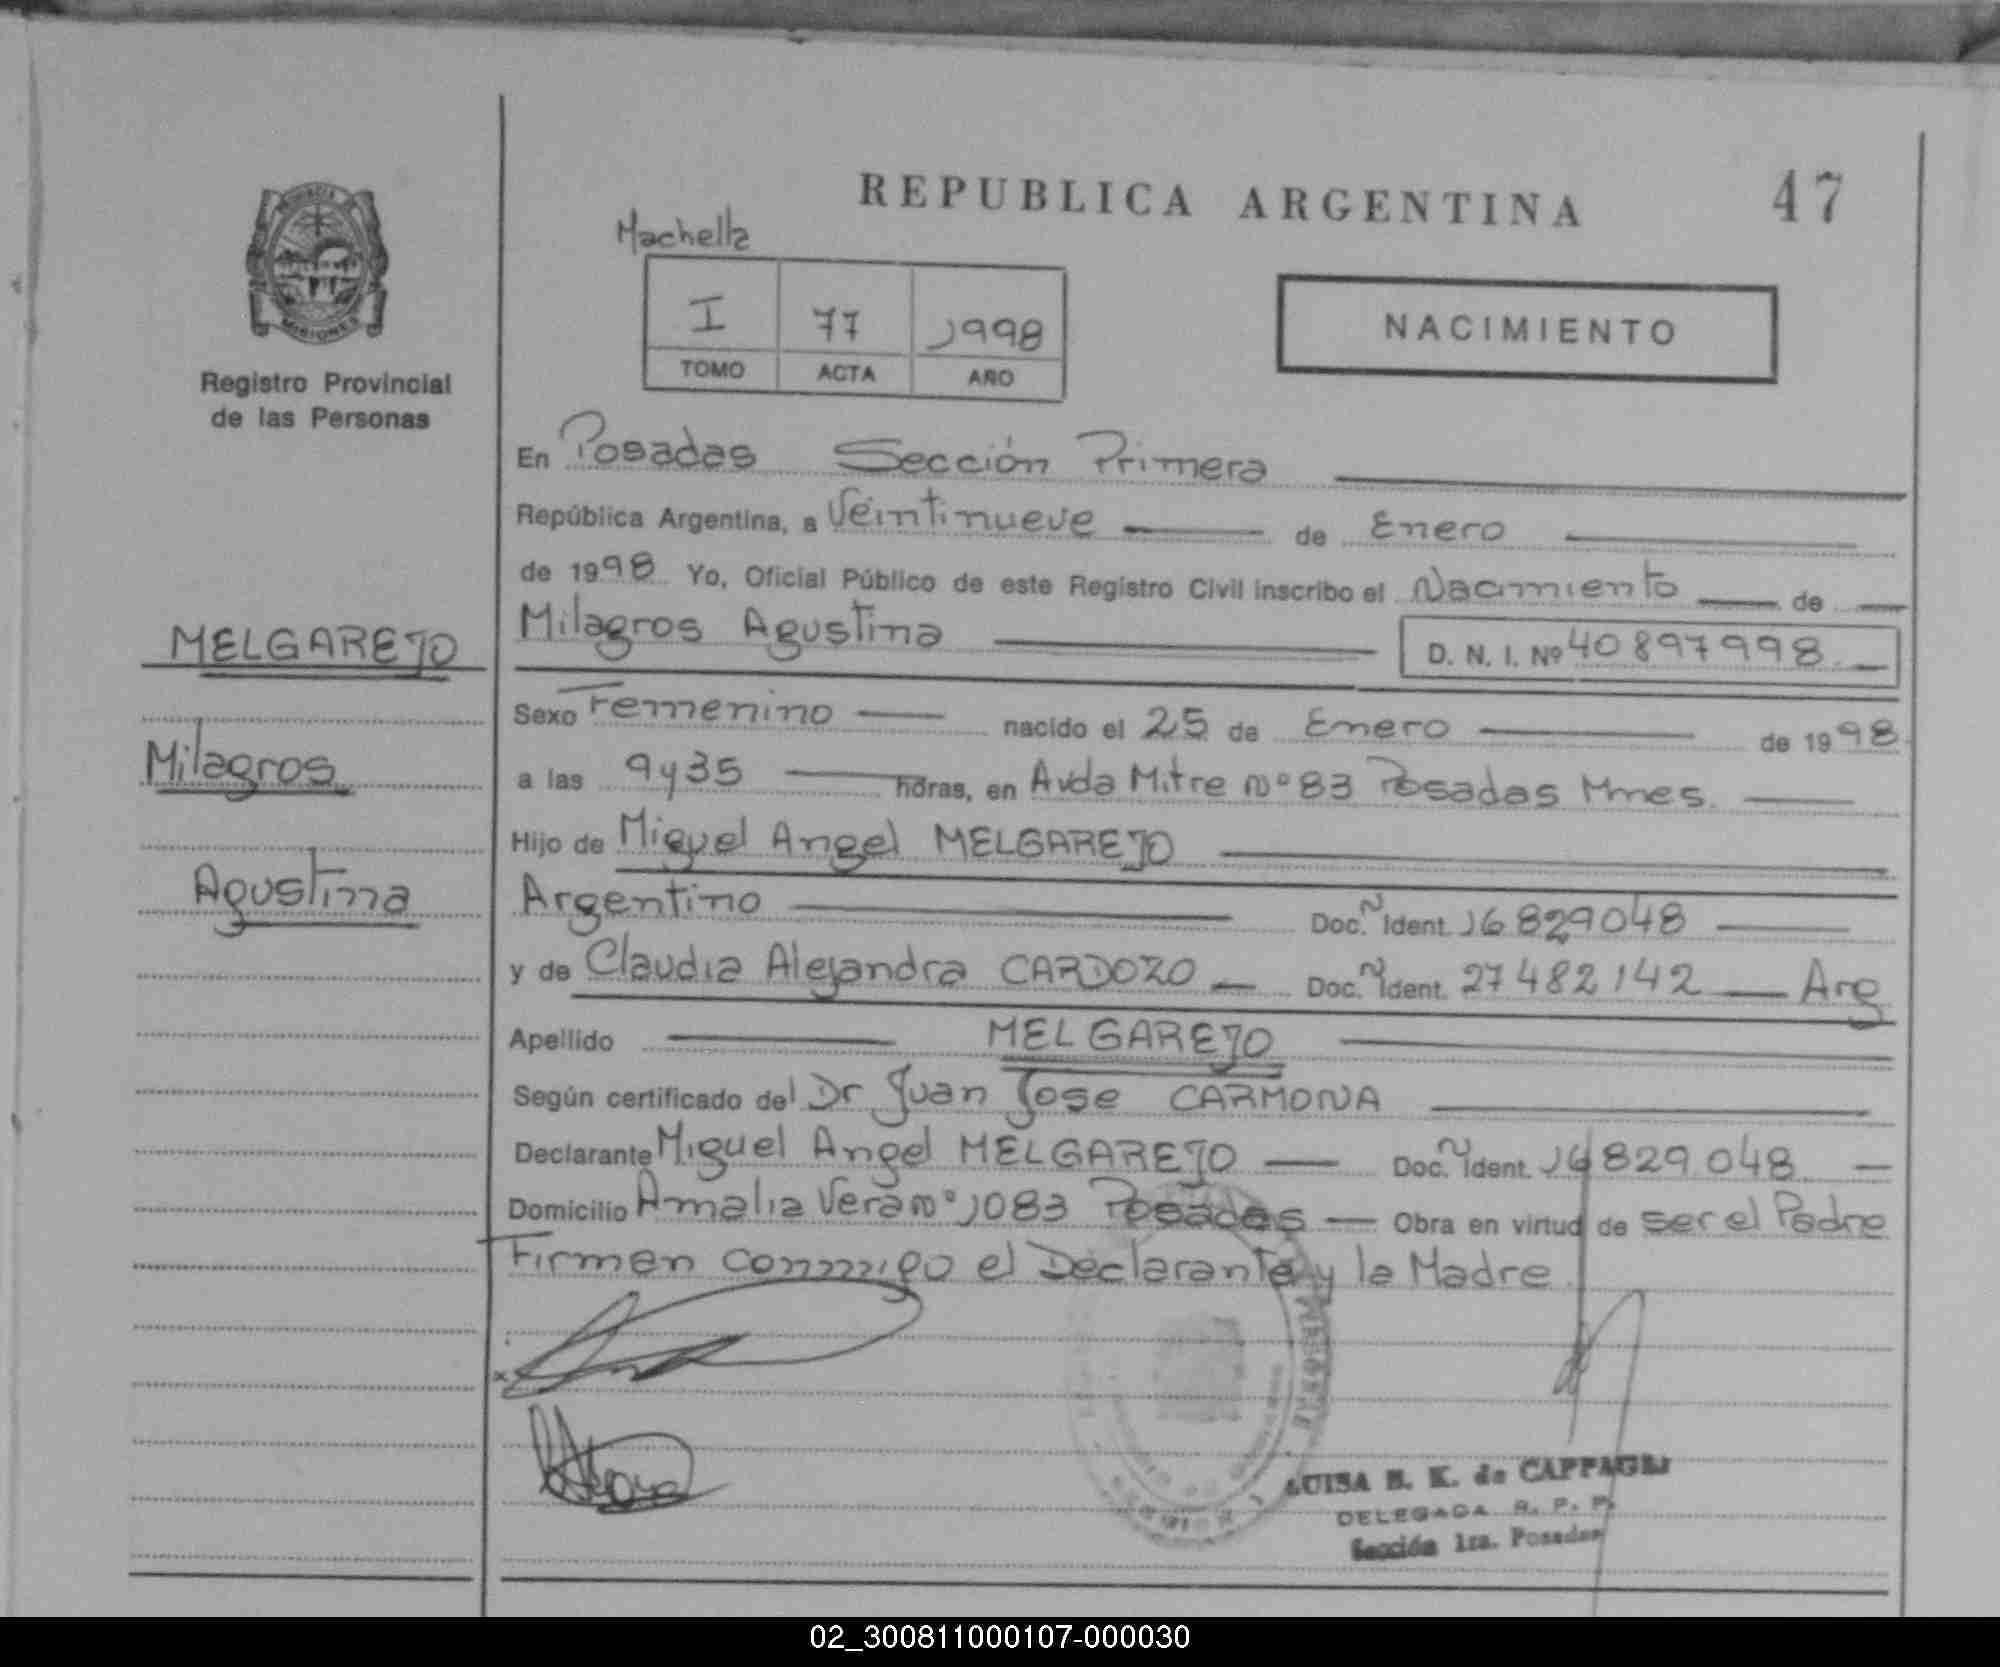 REPUBLICA ARGENTINA
47
Machelta
I 77 1998
TOMO ACTA AÑO
NACIMIENTO
MISIONES
Registro Provincial
de las Personas
En Posadas Sección Primera
República Argentina, a Veintinueve de Enero
de 1998 Yo, Oficial Público de este Registro Civil inscribo el Nacimiento de
Milagros Agustina
D. N. I. Nº 40897998
MELGAREJO
Milagros
Agustina
Sexo Femenino nacido el 25 de Enero de 1998
a las 9y35 horas, en Avda Mitre nº 83 Posadas Mnes.
Hijo de Miguel Angel MELGAREJO
Argentino Doc. N Ident. 16829048
y de Claudia Alejandra CARDOZO Doc. N Ident. 27482142 Arg
Apellido MELGAREJO
Según certificado del Dr Juan Jose CARMONA
Declarante Miguel Angel MELGAREJO Doc. N Ident. 16829048
Domicilio Amalia Vera nº 1083 Posadas Obra en virtud de ser el Padre
Firman conmigo el Declarante y la Madre.
LUISA B. K. de
DELEGADA R. P. P.
Sección 1ra. Posadas
02_300811000107-000030